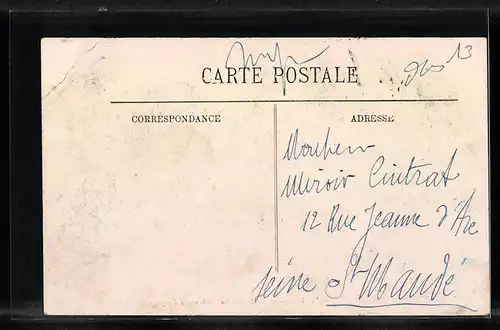 13
CARTE POSTALE
CORRESPONDANCE
ADRESSE
Monsieur
Miroir Cintrat
12 Rue Jeanne d'Arc
St Mandé
Seine